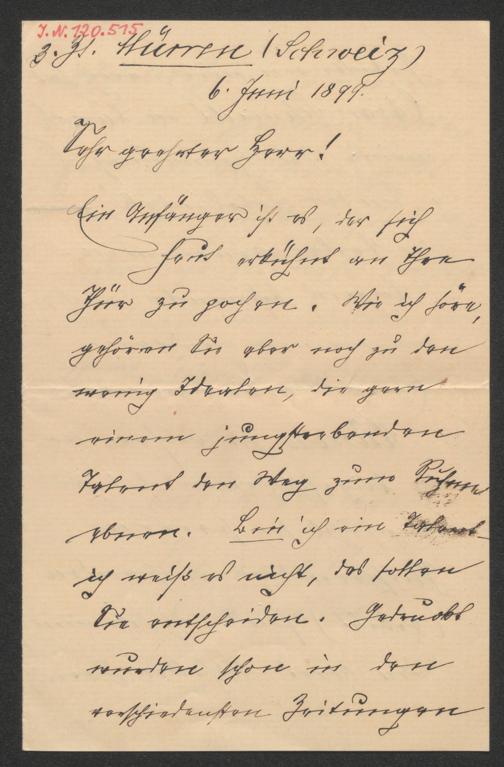 J.N. 120.515
z. Zt. Mürren (Schweiz)
6. Juni 1899.
Sehr geehrter Herr!
Ein Anfänger ist es, der sich
heut erkühnt an Ihre
Thür zu pochen. Wie ich höre,
gehören Sie aber noch zu den
wenig Idealen, die gern
einem jungstrebenden
Talent den Weg zum Ruhme
ebnen. Bin ich ein Talent –
ich weiß es nicht, das sollen
Sie entscheiden. Gedruckt
wurden schon in den
verschiedensten Zeitungen